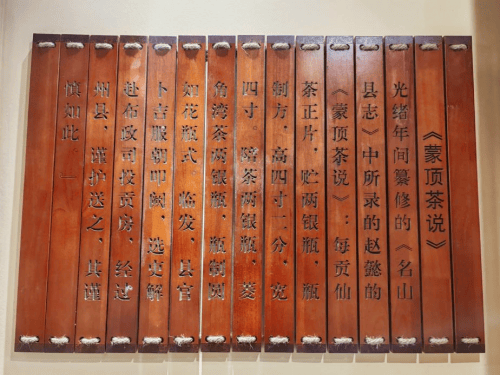 《蒙顶茶说》
光绪年间纂修的《名山
县志》中所录的赵懿的
《蒙顶茶说》：每贡仙
茶正片，贮两银瓶，瓶
制方，高四寸二分，宽
四寸　陪茶两银瓶，菱
角湾茶两银瓶，瓶制圆
如花瓶式　临发，县官
卜吉服朝叩阙，选吏解
赴布政司投贡房，经过
州县，谨护送之，其谨
慎如此。